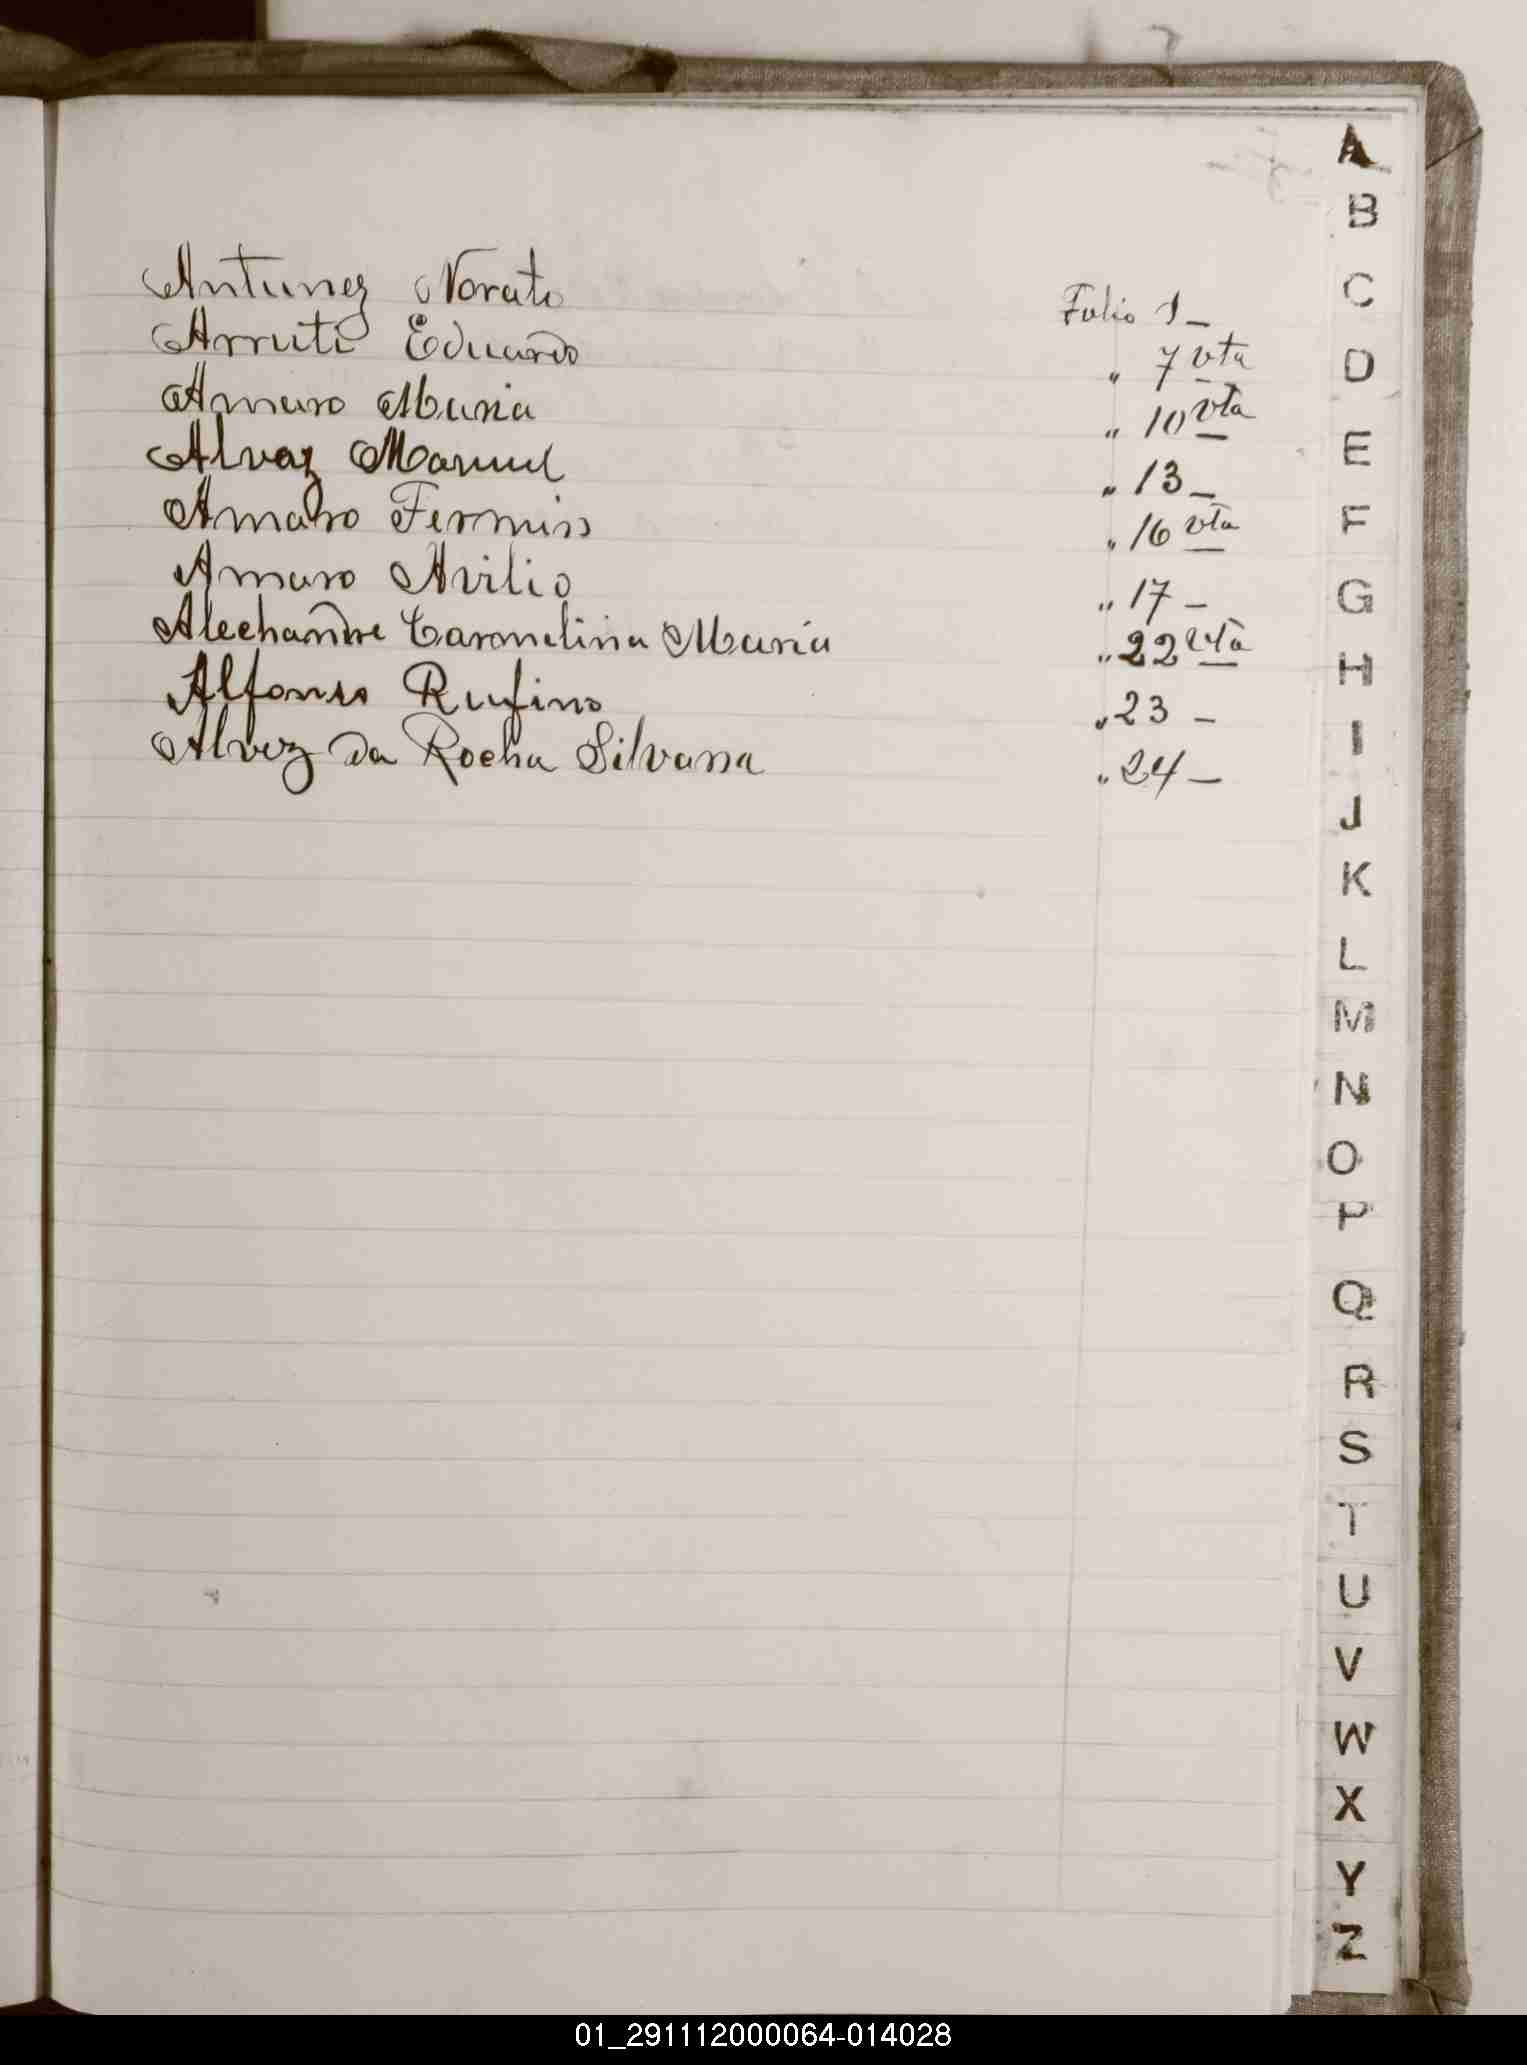 Antunez Norato Folio 1 _
Arruti Eduardo " 7 vta
Amaro Maria " 10 vta
Alvaz Manuel " 13 _
Amaro Fermin " 16 vta
Amaro Avilio " 17 _
Alechandre Carmelina Maria " 22 vta
Alfonso Rufino " 23 _
Alvez da Rocha Silvana " 24 _
A
B
C
D
E
F
G
H
I
J
K
L
M
N
O
P
Q
R
S
T
U
V
W
X
Y
Z
01_291112000064-014028